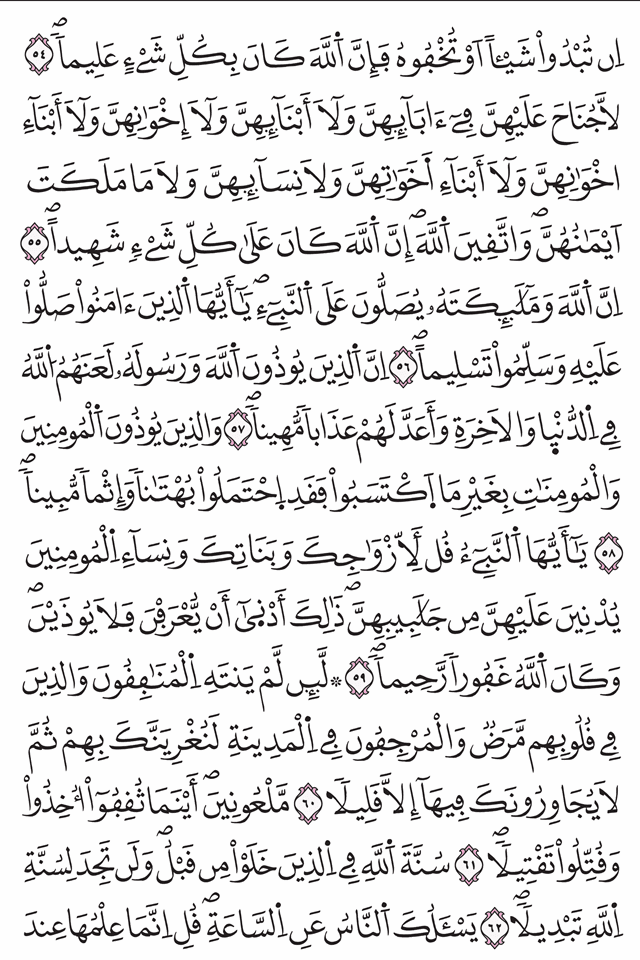 اِن تُبْدُواْ شَيْـٔاً اَوْ تُخْفُوهُ فَإِنَّ اَ۬للَّهَ كَانَ بِكُلِّ شَےْءٍ عَلِيماٗۖ ٥٤
لاَّ جُنَاحَ عَلَيْهِنَّ فِےٓ ءَابَآئِهِنَّ وَلَآ أَبْنَآئِهِنَّ وَلَآ إِخْوَٰنِهِنَّ وَلَآ أَبْنَآءِ
اِخْوَٰنِهِنَّ وَلَآ أَبْنَآءِ اَ۬خَوَٰتِهِنَّ وَلَا نِسَآئِهِنَّ وَلَا مَا مَلَكَتَ
اَيْمَٰنُهُنَّۖ وَاتَّقِينَ اَ۬للَّهَۖ إِنَّ اَ۬للَّهَ كَانَ عَلَىٰ كُلِّ شَےْءٖ شَهِيداًۖ ٥٥
اِنَّ اَ۬للَّهَ وَمَلَٰٓئِكَتَهُۥ يُصَلُّونَ عَلَى اَ۬لنَّبِےٓءِۖ يَٰٓأَيُّهَا اَ۬لذِينَ ءَامَنُواْ صَلُّواْ
عَلَيْهِ وَسَلِّمُواْ تَسْلِيماًۖ ٥٦ اِنَّ اَ۬لذِينَ يُوذُونَ اَ۬للَّهَ وَرَسُولَهُۥ لَعَنَهُمُ اُ۬للَّهُ
فِے اِ۬لدُّنْي۪ا وَالَاخِرَةِ وَأَعَدَّ لَهُمْ عَذَاباٗ مُّهِيناٗۖ ٥٧ وَالذِينَ يُوذُونَ اَ۬لْمُومِنِينَ
وَالْمُومِنَٰتِ بِغَيْرِ مَا اَ۪كْتَسَبُواْ فَقَدِ اِ۪حْتَمَلُواْ بُهْتَٰناٗ وَإِثْماٗ مُّبِيناٗۖ
٥٨ يَٰٓأَيُّهَا اَ۬لنَّبِےٓءُ قُل لِّأَزْوَٰجِكَ وَبَنَاتِكَ وَنِسَآءِ اِ۬لْمُومِنِينَ
يُدْنِينَ عَلَيْهِنَّ مِن جَلَٰبِيبِهِنَّۖ ذَٰلِكَ أَدْن۪ىٰٓ أَنْ يُّعْرَفْنَ فَلَا يُوذَيْنَۖ
وَكَانَ اَ۬للَّهُ غَفُوراٗ رَّحِيماٗۖ ٥٩ ۞ لَّئِن لَّمْ يَنتَهِ اِ۬لْمُنَٰفِقُونَ وَالذِينَ
فِے قُلُوبِهِم مَّرَضٞ وَالْمُرْجِفُونَ فِے اِ۬لْمَدِينَةِ لَنُغْرِيَنَّكَ بِهِمْ ثُمَّ
لَا يُجَاوِرُونَكَ فِيهَآ إِلاَّ قَلِيلاٗ ٦٠ مَّلْعُونِينَۖ أَيْنَمَا ثُقِفُوٓاْ أُخِذُواْ
وَقُتِّلُواْ تَقْتِيلاٗۖ ٦١ سُنَّةَ اَ۬للَّهِ فِے اِ۬لذِينَ خَلَوْاْ مِن قَبْلُۖ وَلَن تَجِدَ لِسُنَّةِ
اِ۬للَّهِ تَبْدِيلاٗۖ ٦٢ يَسْـَٔلُكَ اَ۬لنَّاسُ عَنِ اِ۬لسَّاعَةِۖ قُلِ اِنَّمَا عِلْمُهَا عِندَ